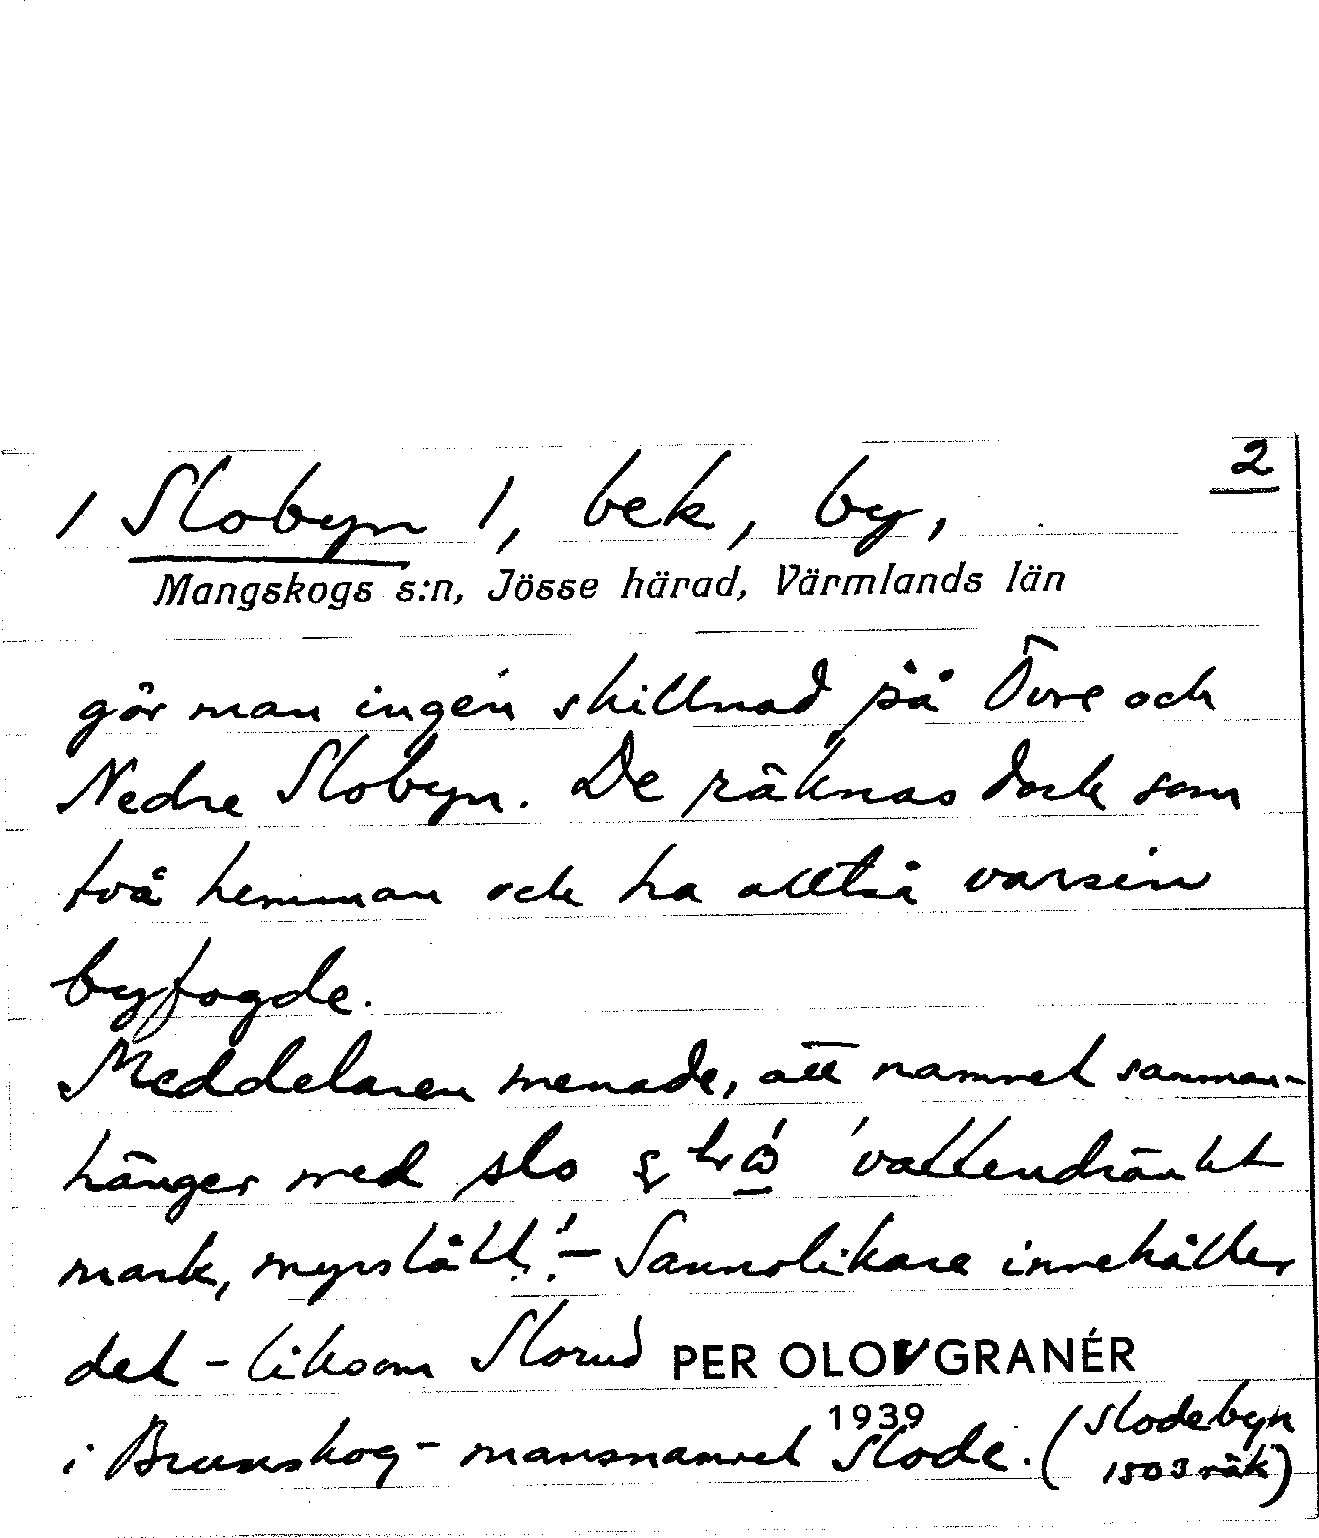 2
/ Slobyn /, bek, by,
Mangskogs s:n, Jösse härad, Värmlands län
gör man ingen skillnad på Övre och
Nedre Slobyn. De räknas dock som
två hemman och ha alltså varsin
byfogde.
Meddelaren menade, att namnet samman-
hänger med slo 'vattendränkt
mark, myrslått'. - Sannolikare innehåller
det - liksom Slorud PER OLOV GRANÉR
1939
i Brunskog - mansnamnet Slode. (Slodebyn
1503 räk)